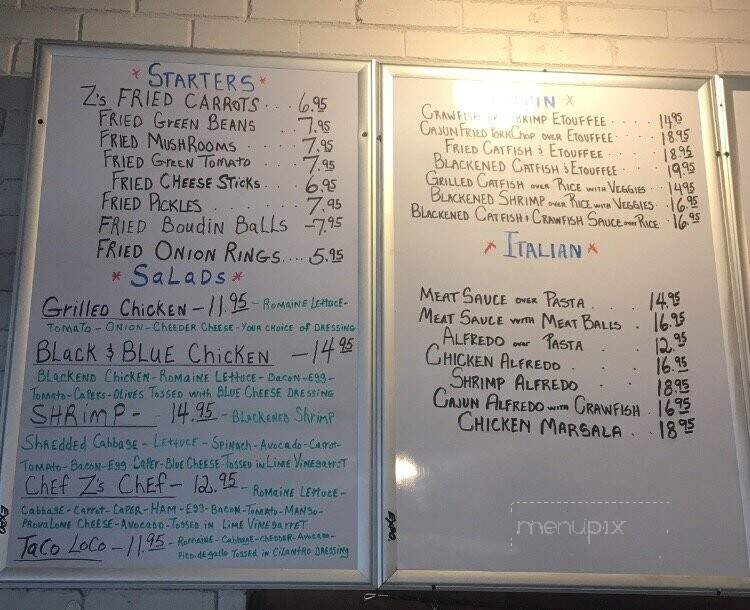 * STARTERS *
Z's FRIED CARROTS... 6.95
FRIED GREEN BEANS .. 7.95
FRIED MUSHROOMS ... 7.95
FRIED GREEN TOMATO .... 7.95
FRIED CHEESE STICKS ... 6.95
FRIED PICKLES ....... 7.95
FRIED BOUDIN BALLS - 7.95
FRIED ONION RINGS.... 5.95
* SALADS *
GRILLED CHICKEN - 11.95 - ROMAINE LETTUCE-
TOMATO - ONION - CHEEDER CHEESE - YOUR CHOICE OF DRESSING
BLACK & BLUE CHICKEN - 14.95
BLACKEND CHICKEN - ROMAINE LETTUCE - BACON - EGG -
TOMATO - CAPERS - OLIVES TOSSED WITH BLUE CHEESE DRESSING
SHRIMP - 14.95 - BLACKENED SHRIMP
SHREDDED CABBAGE - LETTUCE - SPINACH - AVOCADO - CARROT-
TOMATO - BACON - EGG CAPER - BLUE CHEESE TOSSED IN LIME VINEGARRET
CHEF Z'S CHEF - 12.95 - ROMAINE LETTUCE -
CABBAGE - CARROT - CAPER - HAM - EGG - BACON - TOMATO - MANGO -
PROVALONE CHEESE - AVOCADO - TOSSED IN LIME VINEGARRET
TACO LOCO - 11.95 - ROMAINE - CABBAGE - CHEDDER - AVOCADO -
PICO.DE.GALLO TOSSED IN CILANTRO DRESSING
EXPO
CRAWFISH SHRIMP ETOUFFEE ..... 14.95
CAJUN FRIED PORK CHOP OVER ETOUFFEE .... 18.95
FRIED CATFISH & ETOUFFEE .... 18.95
BLACKENED CATFISH & ETOUFFEE ... 19.95
GRILLED CATFISH OVER RICE WITH VEGGIES .. 14.95
BLACKENED SHRIMP OVER RICE WITH VEGGIES . 16.95
BLACKENED CATFISH & CRAWFISH SAUCE OVER RICE . 16.95
* ITALIAN *
MEAT SAUCE OVER PASTA . . 14.95
MEAT SAUCE WITH MEAT BALLS . 16.95
ALFREDO OVER PASTA . . 12.95
CHICKEN ALFREDO . . . 16.95
SHRIMP ALFREDO . . 18.95
CAJUN ALFREDO WITH CRAWFISH . 16.95
CHICKEN MARSALA . . 18.95
EXPO
menupix